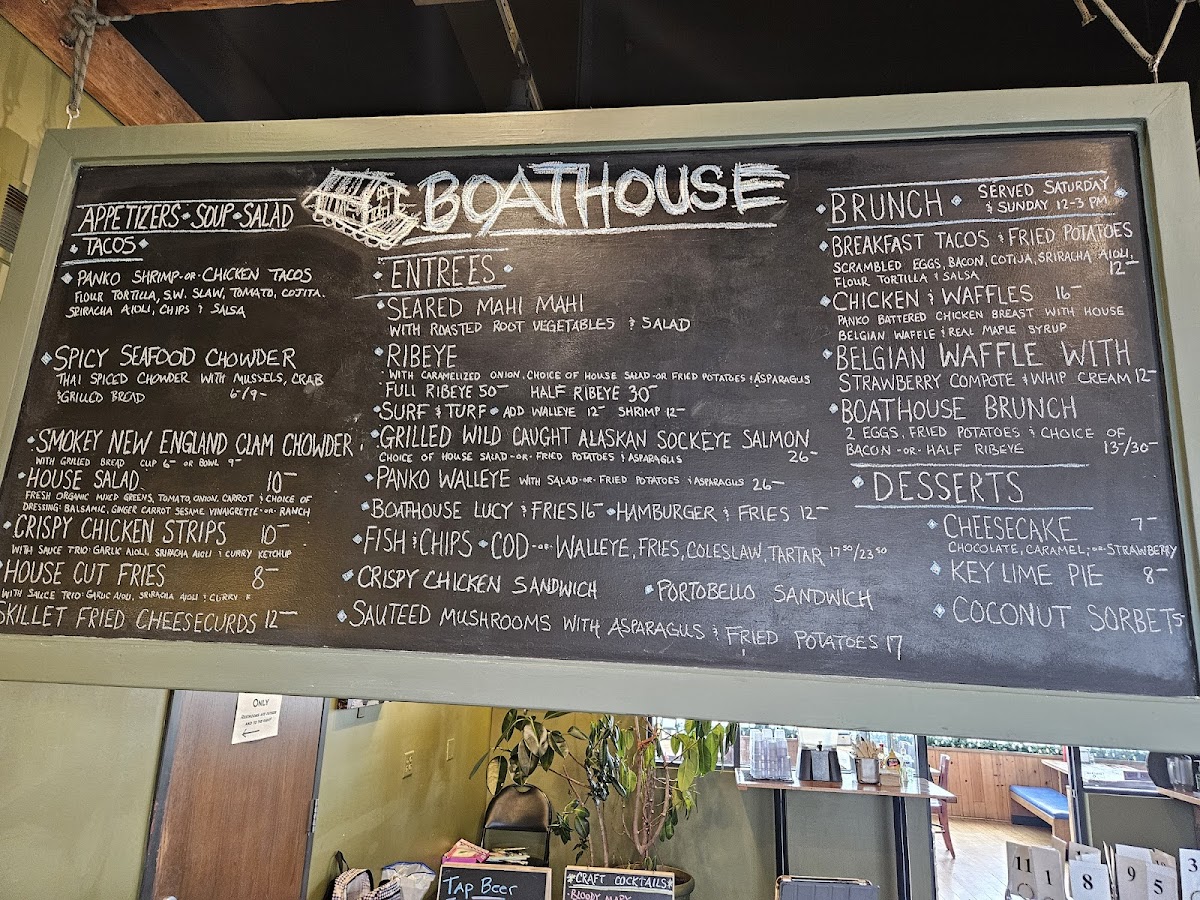 BOATHOUSE
APPETIZERS • SOUP • SALAD
• TACOS •
• PANKO SHRIMP -OR- CHICKEN TACOS
FLOUR TORTILLA, S.W. SLAW, TOMATO, COJITA.
SRIRACHA AIOLI, CHIPS & SALSA
• SPICY SEAFOOD CHOWDER
THAI SPICED CHOWDER WITH MUSSELS, CRAB
& GRILLED BREAD 6/9-
• SMOKEY NEW ENGLAND CLAM CHOWDER
WITH GRILLED BREAD CUP 6- OR BOWL 9-
• HOUSE SALAD 10-
FRESH ORGANIC MIXED GREENS, TOMATO, ONION, CARROT & CHOICE OF
DRESSING: BALSAMIC, GINGER CARROT SESAME VINAIGRETTE -OR- RANCH
• CRISPY CHICKEN STRIPS 10-
WITH SAUCE TRIO: GARLIC AIOLI, SRIRACHA AIOLI & CURRY KETCHUP
HOUSE CUT FRIES 8-
WITH SAUCE TRIO: GARLIC AIOLI, SRIRACHA AIOLI & CURRY K
SKILLET FRIED CHEESECURDS 12-
• ENTREES •
• SEARED MAHI MAHI
WITH ROASTED ROOT VEGETABLES & SALAD
• RIBEYE
WITH CARAMELIZED ONION, CHOICE OF HOUSE SALAD -OR- FRIED POTATOES & ASPARAGUS
FULL RIBEYE 50- HALF RIBEYE 30-
• SURF & TURF • ADD WALLEYE 12- SHRIMP 12-
• GRILLED WILD CAUGHT ALASKAN SOCKEYE SALMON
CHOICE OF HOUSE SALAD -OR- FRIED POTATOES & ASPARAGUS 26-
• PANKO WALLEYE WITH SALAD -OR- FRIED POTATOES & ASPARAGUS 26-
• BOATHOUSE LUCY & FRIES 16- • HAMBURGER & FRIES 12-
• FISH & CHIPS • COD -OR- WALLEYE, FRIES, COLESLAW, TARTAR 17.50/23.50
• CRISPY CHICKEN SANDWICH • PORTOBELLO SANDWICH
• SAUTEED MUSHROOMS WITH ASPARAGUS & FRIED POTATOES 17
• BRUNCH • SERVED SATURDAY
& SUNDAY 12-3 PM
• BREAKFAST TACOS & FRIED POTATOES
SCRAMBLED EGGS, BACON, COTIJA, SRIRACHA AIOLI,
FLOUR TORTILLA & SALSA 12-
• CHICKEN & WAFFLES 16-
PANKO BATTERED CHICKEN BREAST WITH HOUSE
BELGIAN WAFFLE & REAL MAPLE SYRUP
• BELGIAN WAFFLE WITH
STRAWBERRY COMPOTE & WHIP CREAM 12-
• BOATHOUSE BRUNCH
2 EGGS, FRIED POTATOES & CHOICE OF
BACON -OR- HALF RIBEYE 13-/30-
• DESSERTS
• CHEESECAKE 7-
CHOCOLATE, CARAMEL, -OR- STRAWBERRY
• KEY LIME PIE 8-
• COCONUT SORBETS
ONLY
TAP BEER
*CRAFT COCKTAILS*
BLOODY MARY
11 1 8 9 5 3